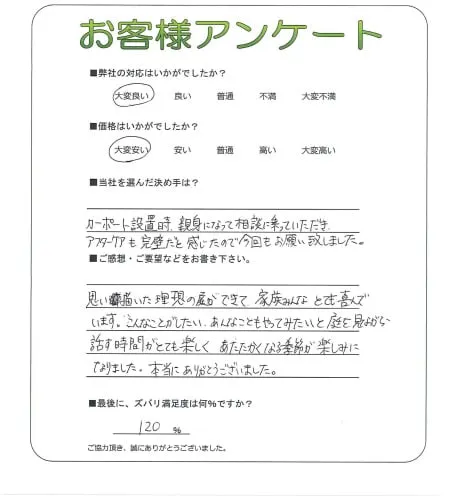 お客様アンケート
■弊社の対応はいかがでしたか？
大変良い 良い 普通 不満 大変不満
■価格はいかがでしたか？
大変安い 安い 普通 高い 大変高い
■当社を選んだ決め手は？
カーポート設置時、親身になって相談に乗っていただき、
アフターケアも完璧だと感じたので今回もお願い致しました。
■ご感想・ご要望などをお書き下さい。
思い描いた理想の庭ができて 家族みんな とても喜んで
います。こんなことがしたい、あんなこともやってみたいと庭を見ながら
話す時間がとても楽しく あたたかくなる季節が楽しみに
なりました。本当にありがとうございました。
■最後に、ズバリ満足度は何％ですか？
120 ％
ご協力頂き、誠にありがとうございました。